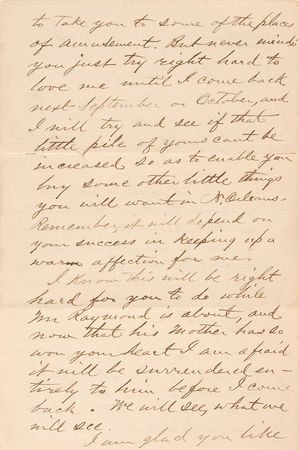 to take you to some of the places
of amusement. But never mind
you just try right hard to
love me until I come back
next September or October, and
I will try and see if that
little pile of yours cant be
increased so as to enable you
buy some other little things
you will want in N. Orleans.
Remember it will depend on
your success in keeping up a
warm affection for me.
I know this will be right
hard for you to do while
Mr Raymond is about, and
now that his Mother has so
won your heart I am afraid
it will be surrendered en-
tirely to him before I come
back. We will see, what we
will see.
I am glad you like